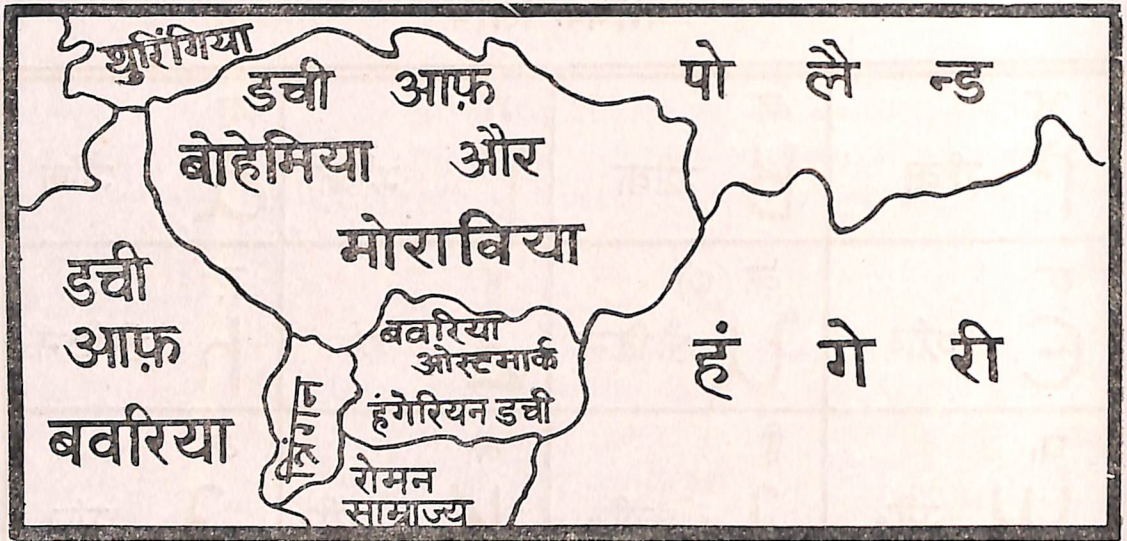 थुरिंगिया
डची आफ़
बोहेमिया और
मोराविया
पो लै न्ड
डची
आफ़
बवरिया
बवरिया
ओस्टमार्क
हंगेरियन डची
रोमन
साम्राज्य
हं गे री